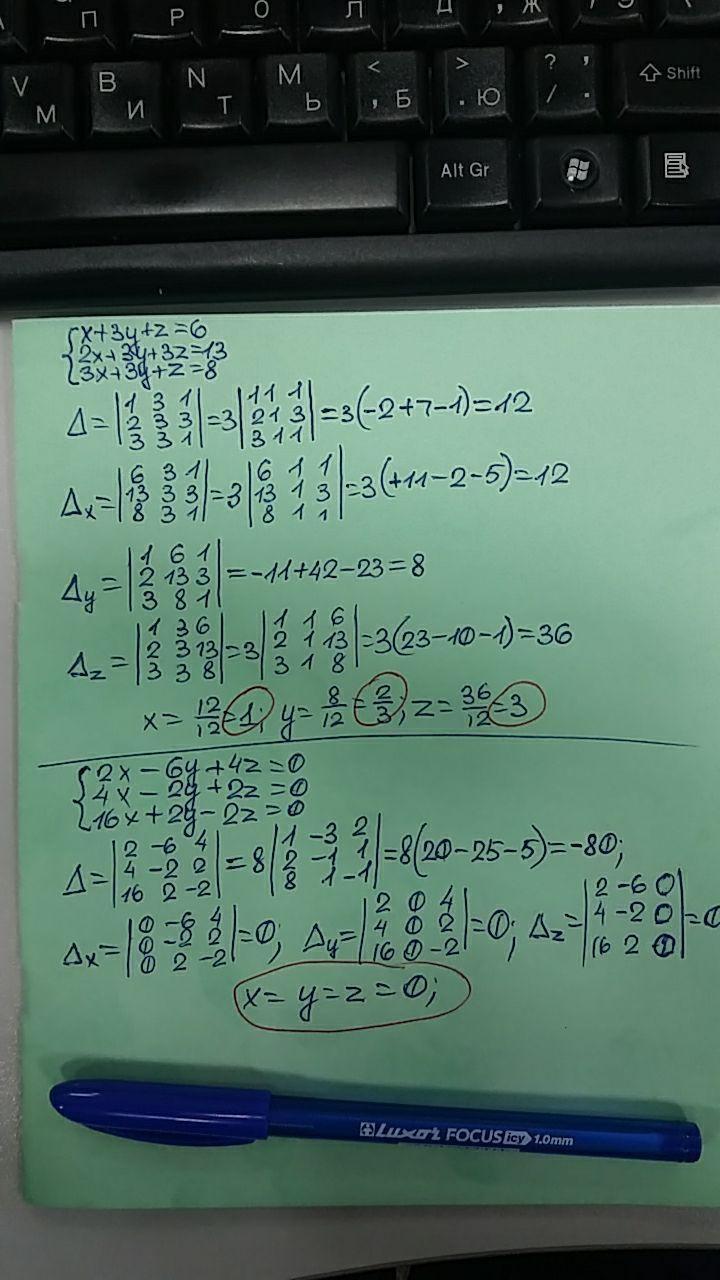 П Р О Л Д , Ж Э
V М В И N Т М Ь < , Б > . Ю ? , / . Shift
Alt Gr
{x+3y+z=6
2x+3y+3z=13
3x+3y+z=8
Δ=|1 3 1; 2 3 3; 3 3 1|=3|1 1 1; 2 1 3; 3 1 1|=3(-2+7-1)=12
Δx=|6 3 1; 13 3 3; 8 3 1|=3|6 1 1; 13 1 3; 8 1 1|=3(+11-2-5)=12
Δy=|1 6 1; 2 13 3; 3 8 1|=-11+42-23=8
Δz=|1 3 6; 2 3 13; 3 3 8|=3|1 1 6; 2 1 13; 3 1 8|=3(23-10-1)=36
x=12/12=1; y=8/12=2/3; z=36/12=3
{2x-6y+4z=0
4x-2y+2z=0
16x+2y-2z=0
Δ=|2 -6 4; 4 -2 2; 16 2 -2|=8|1 -3 2; 2 -1 1; 8 1 -1|=8(20-25-5)=-80;
Δx=|0 -6 4; 0 -2 2; 0 2 -2|=0; Δy=|2 0 4; 4 0 2; 16 0 -2|=0; Δz=|2 -6 0; 4 -2 0; 16 2 0|=0
x=y=z=0;
Luxor FOCUS icy 1.0mm